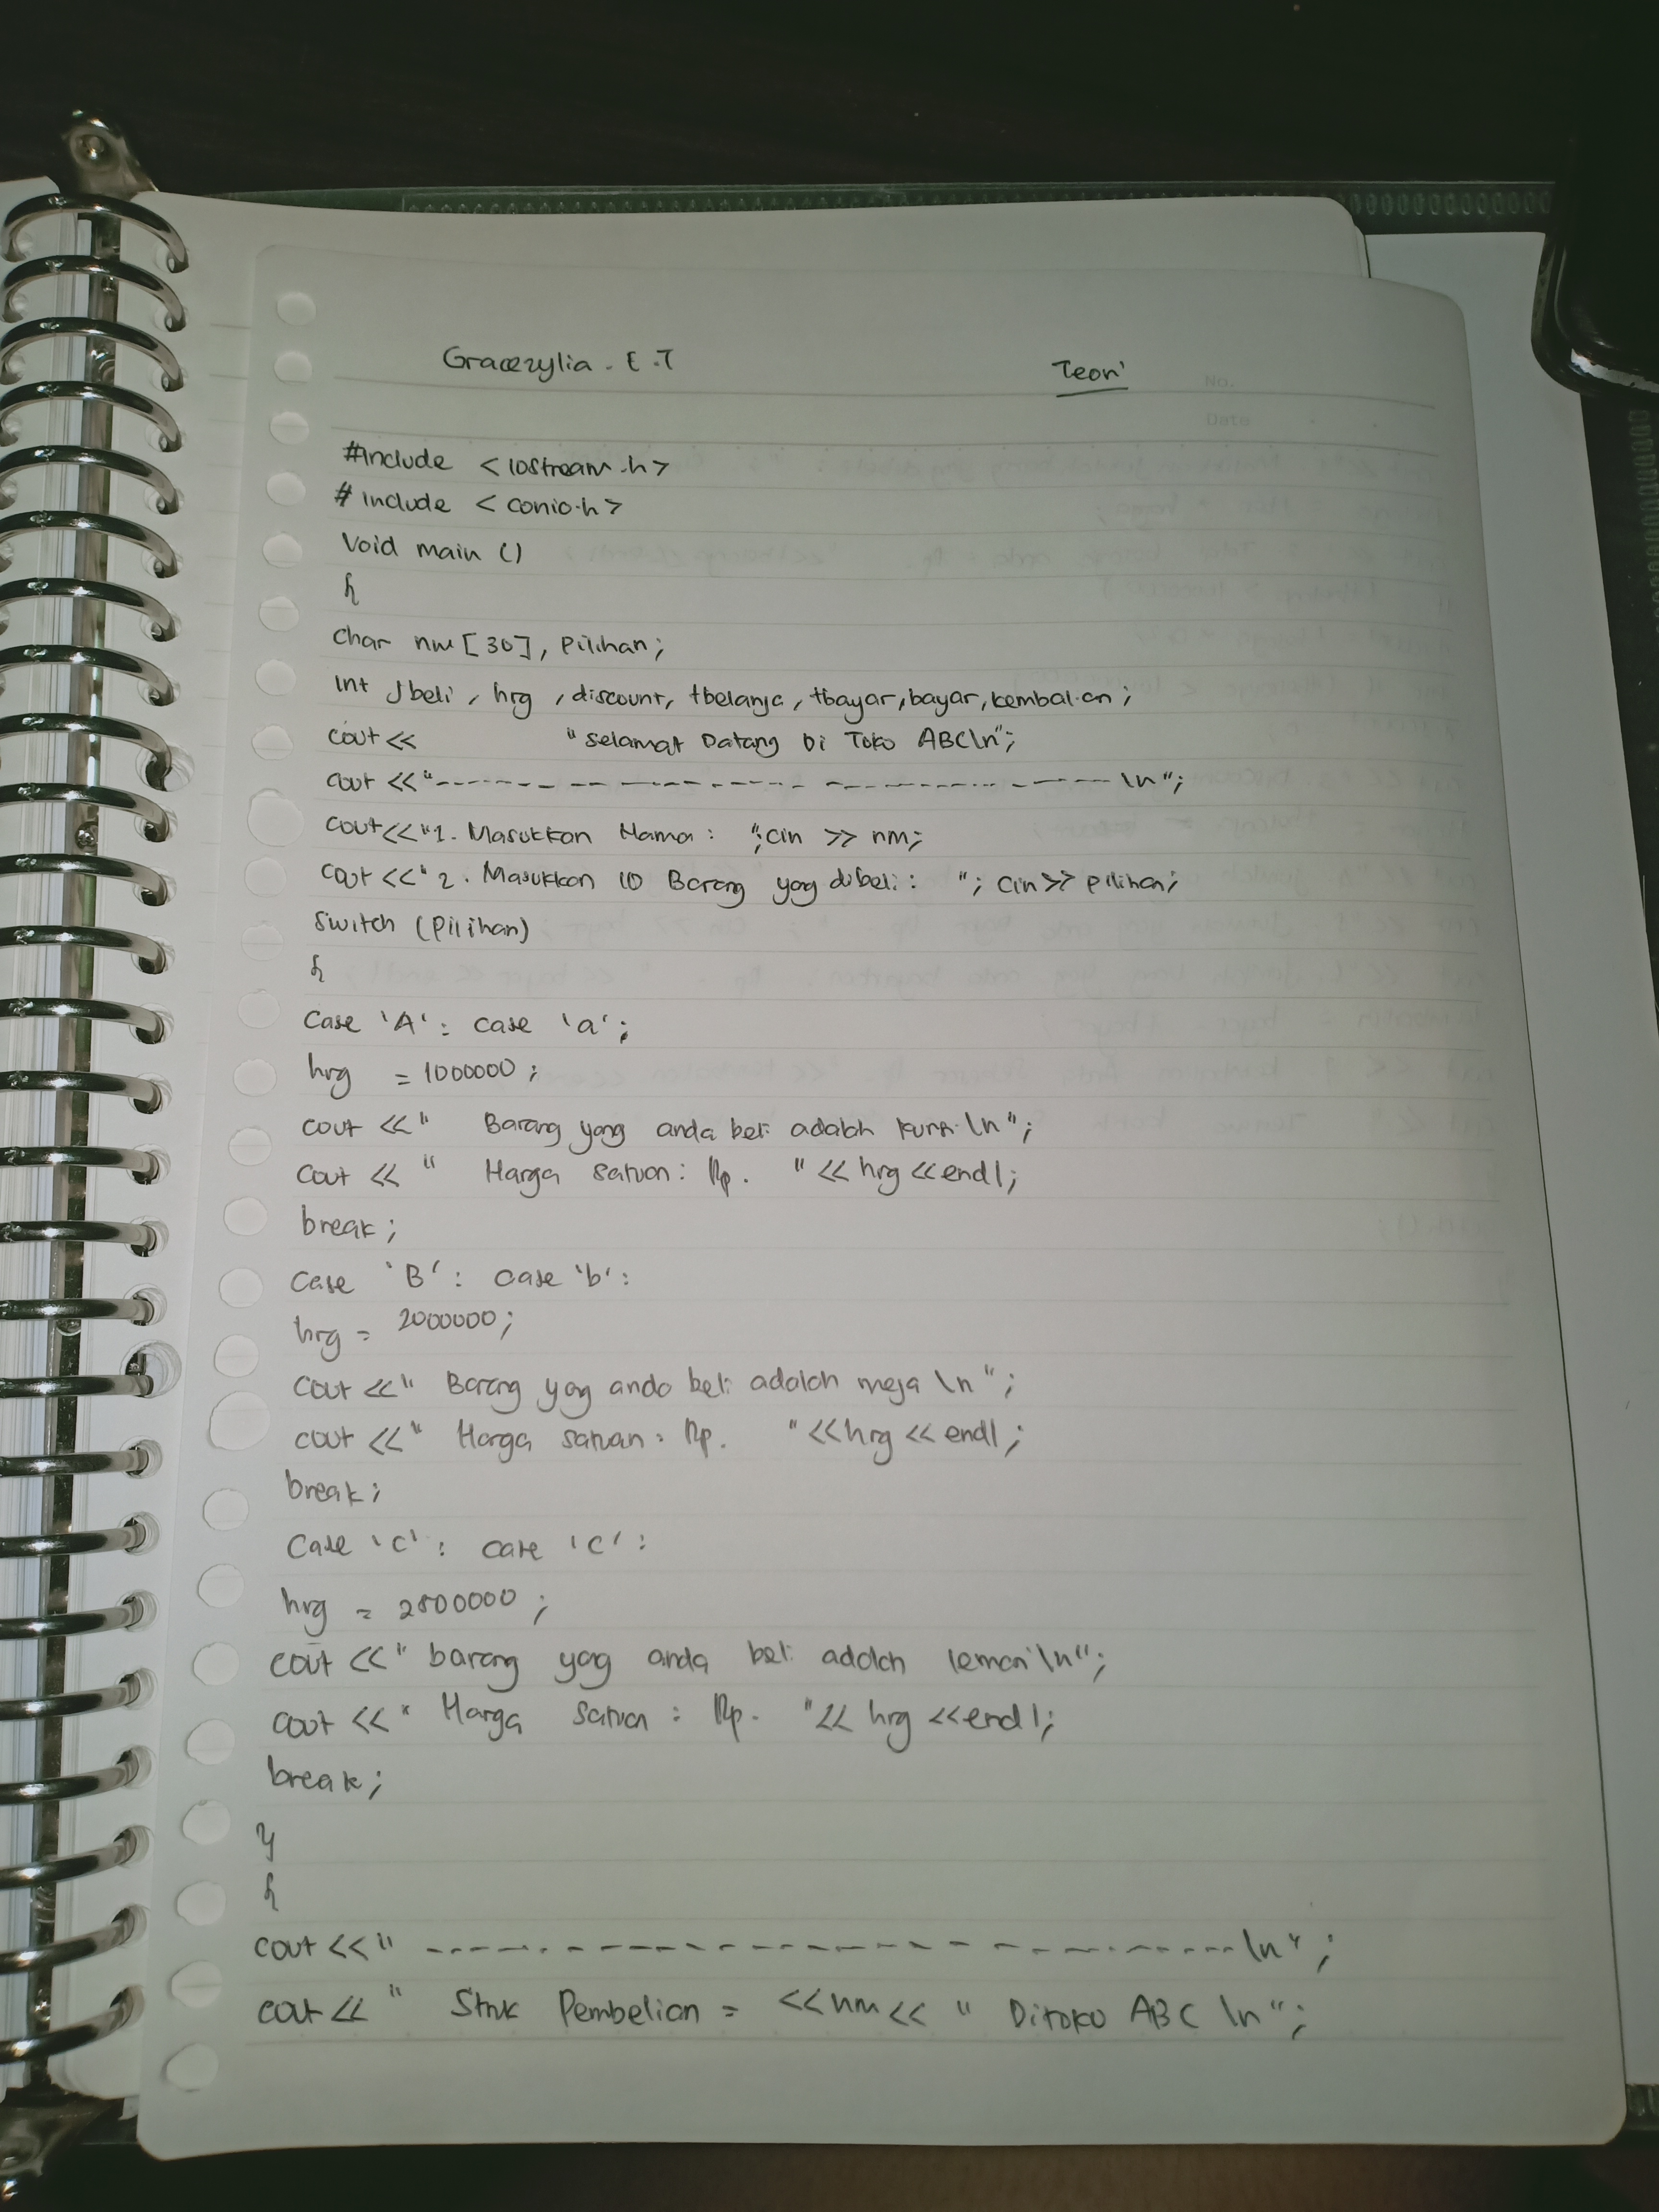 Gracezylia . E . T
Teori
No.
Date
#include <iostream.h>
#include <conio.h>
Void main ()
{
char nm [30], Pilihan;
int Jbeli, hrg, discount, tbelanja, tbayar, bayar, kembalian;
cout << "Selamat Datang Di Toko ABC\n";
cout <<"------------------------------\n";
cout<<"1. Masukkan Nama : ";cin >> nm;
cout <<"2. Masukkan ID Barang yang dibeli : "; cin>> Pilihan;
switch (Pilihan)
{
Case 'A' : case 'a' ;
hrg = 1000000 ;
cout <<" Barang yang anda beli adalah kursi \n";
cout << " Harga satuan : Rp. "<< hrg <<endl;
break;
Case 'B' : case 'b' :
hrg = 2000000;
cout <<" Barang yang anda beli adalah meja \n";
cout <<" Harga satuan : Rp. "<<hrg << endl;
break;
Case 'C' : case 'c' :
hrg = 2500000 ;
cout <<" barang yang anda beli adalah lemari\n";
cout <<" Harga Satuan : Rp. "<< hrg <<endl;
break;
}
{
cout <<" ------------------------------\n";
cout << " Struk Pembelian = <<nm<< " Ditoko ABC \n";